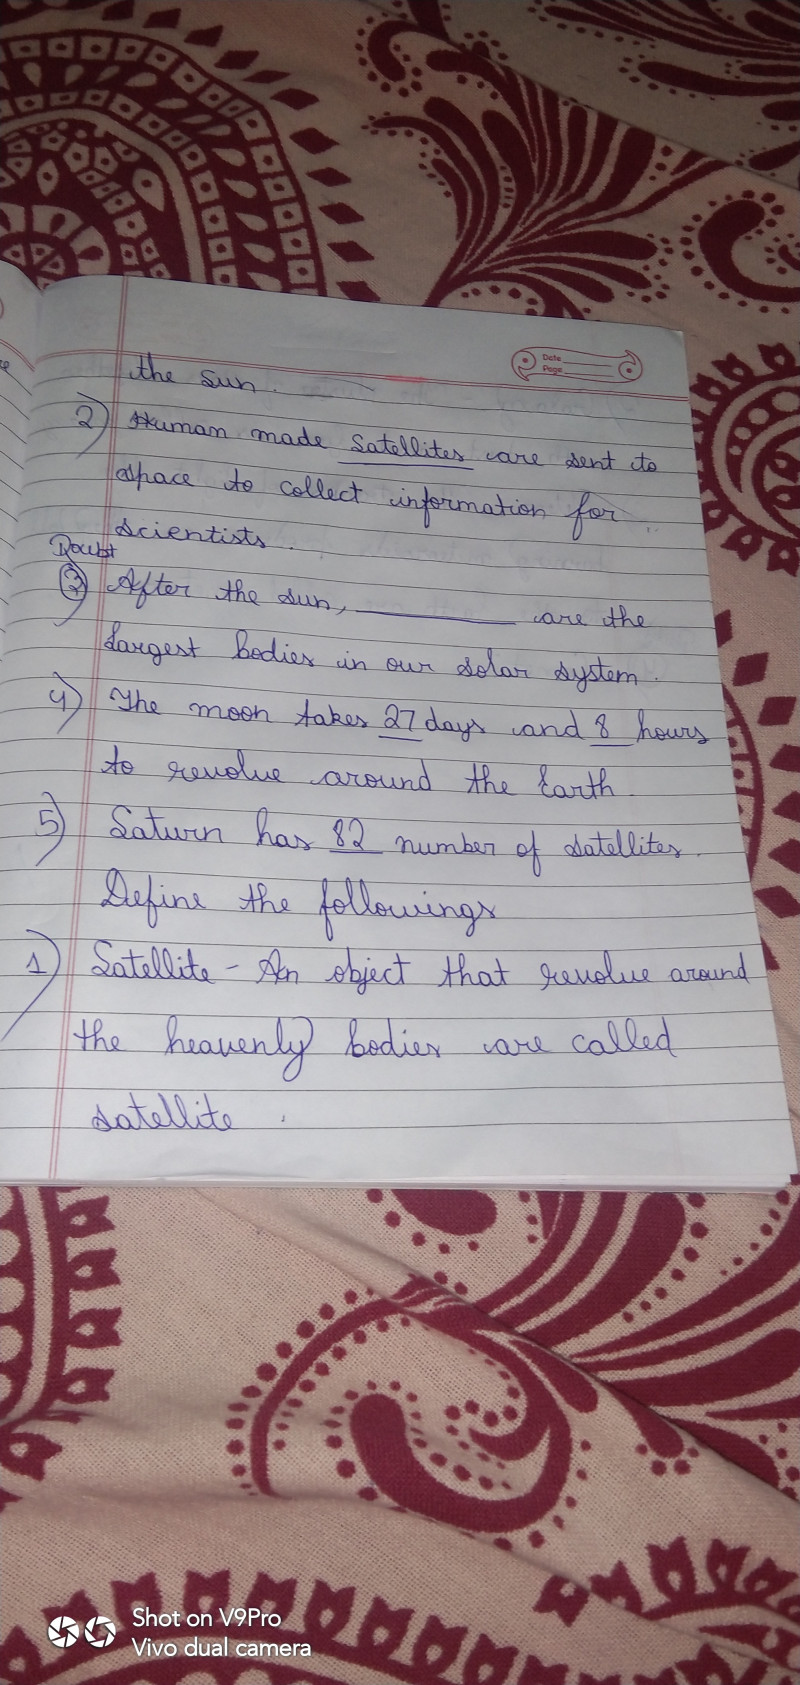 Date
Page
the sun.
2) Human made satellites are sent to
space to collect information for
scientists.
Doubt
3) After the sun, ________ are the
largest bodies in our solar system.
4) The moon takes 27 days and 8 hours
to revolve around the Earth.
5) Saturn has 82 number of satellites.
Define the followings
1) Satellite - An object that revolve around
the heavenly bodies are called
satellite.
Shot on V9Pro
Vivo dual camera